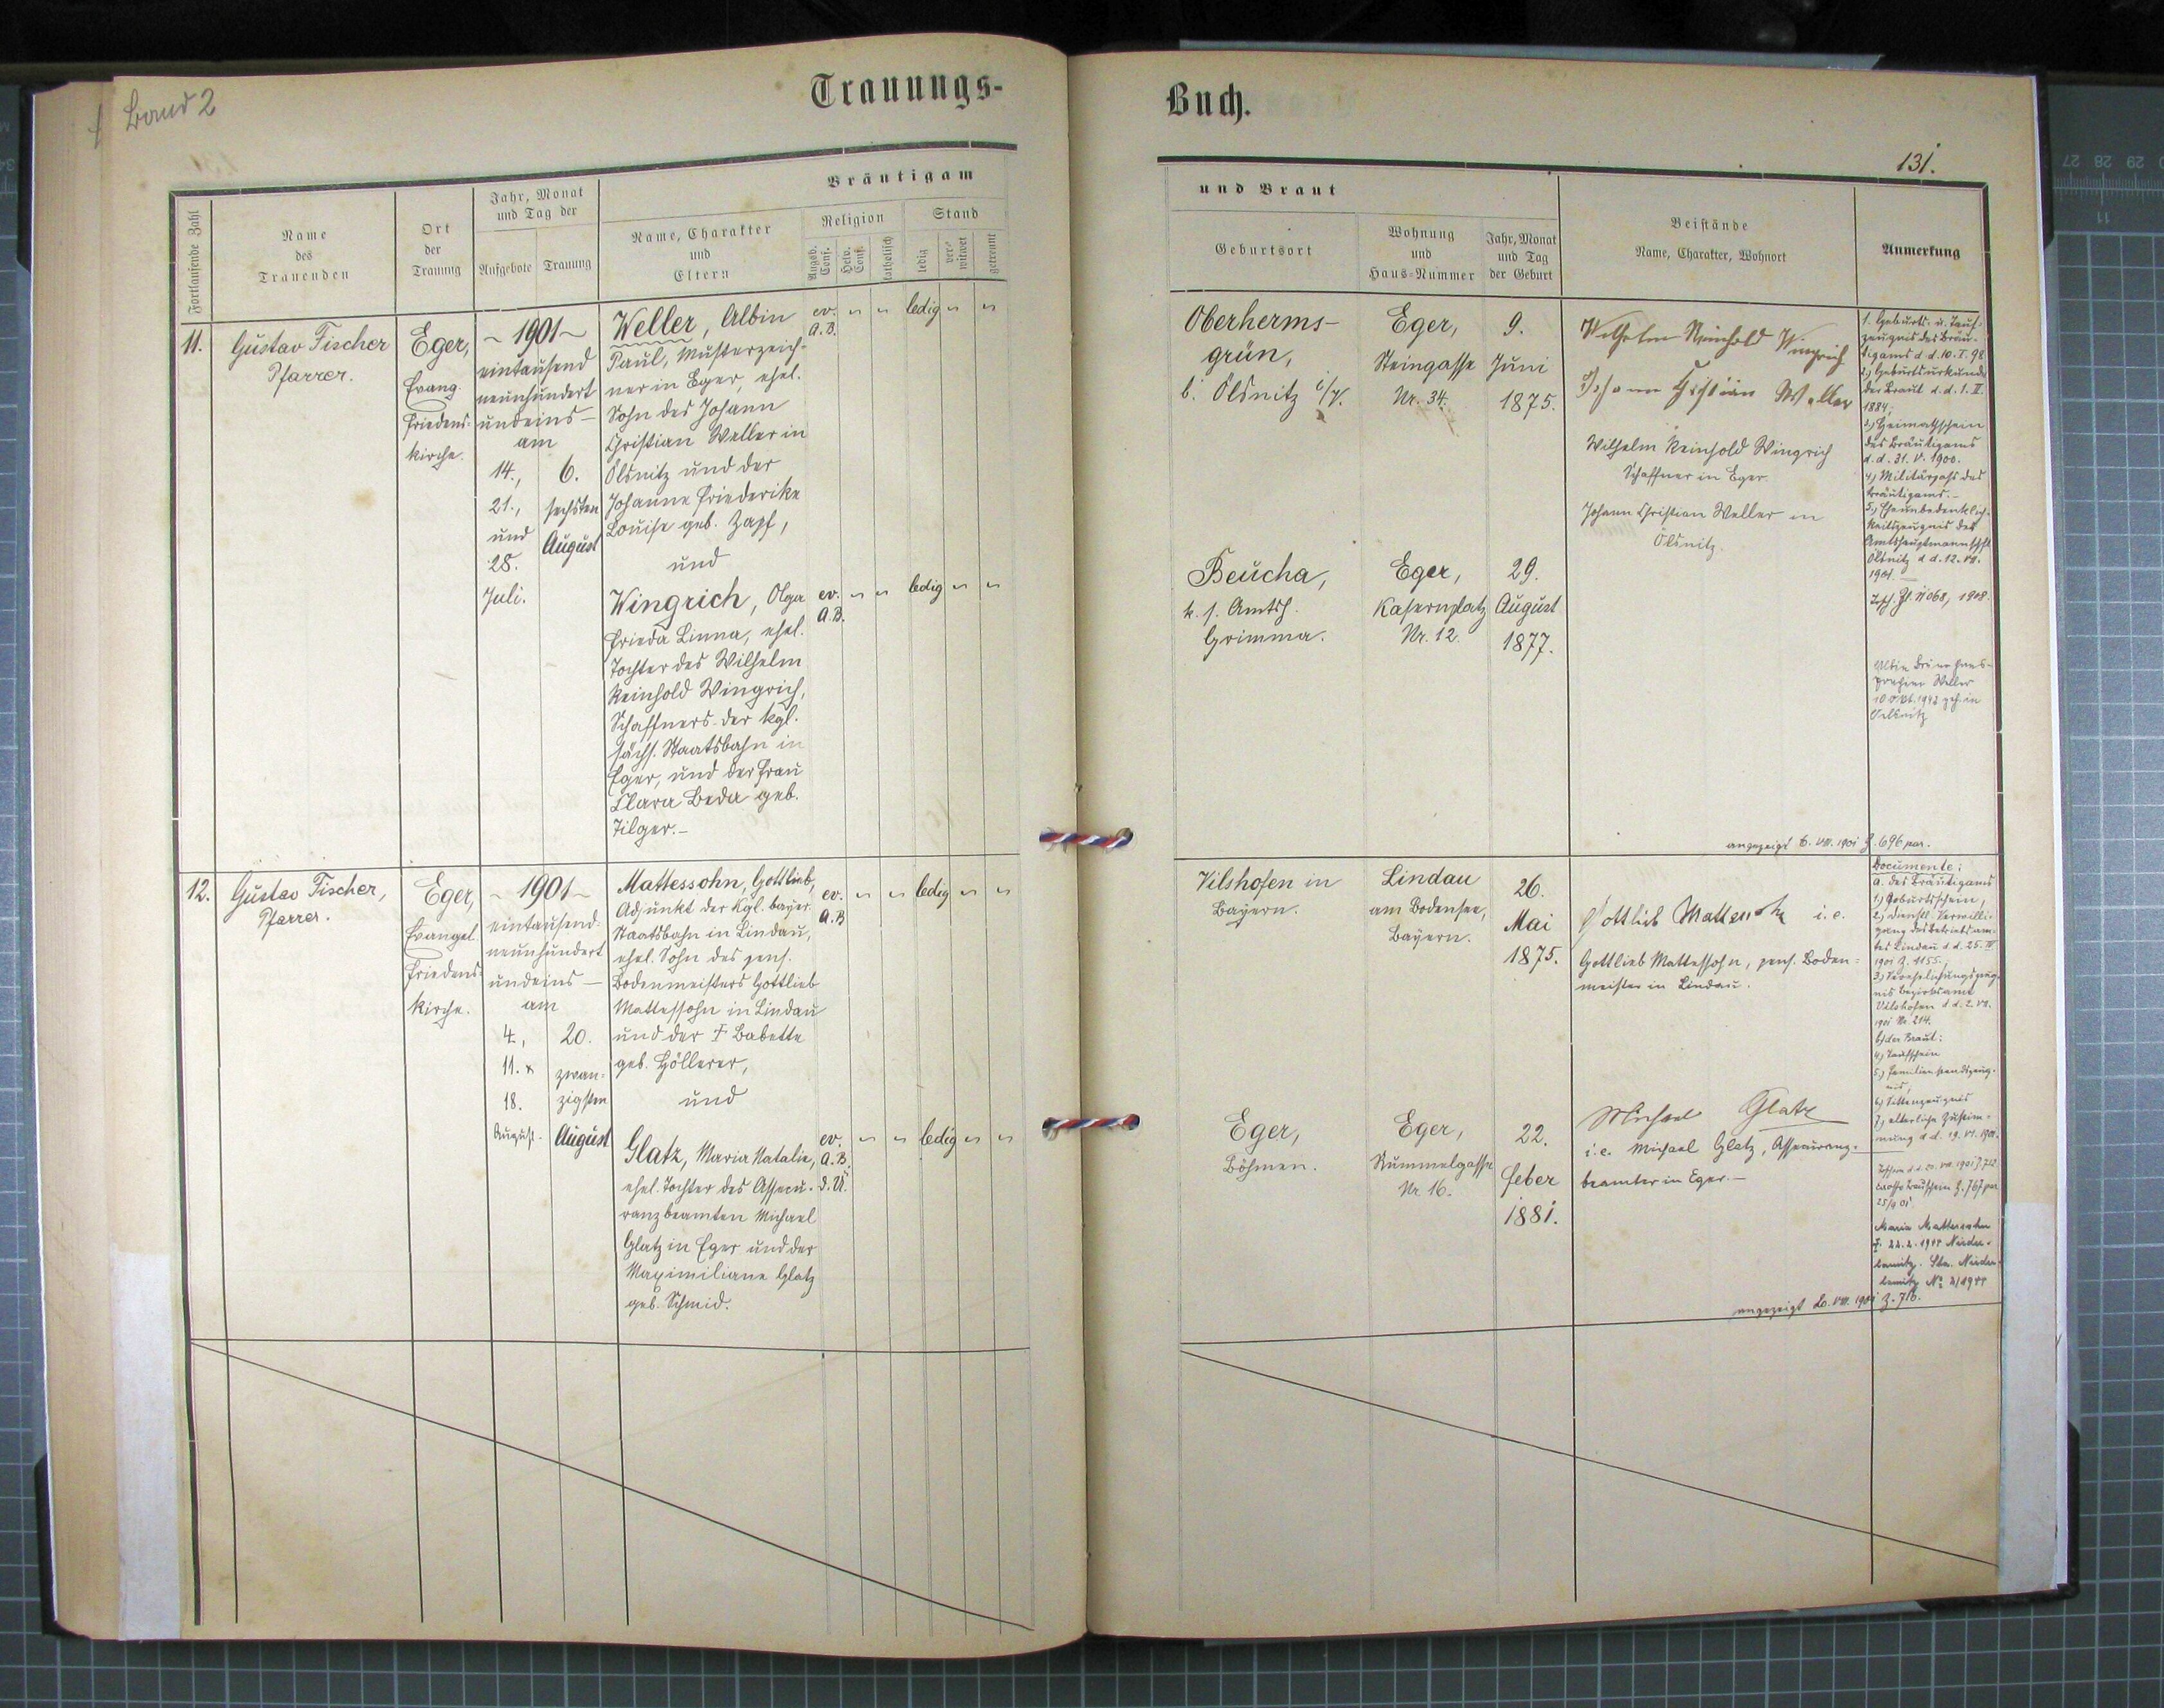 Band 2
Trauungs-
Fortlaufende Zahl
Name
des
Trauenden
Ort
der
Trauung
Jahr, Monat
und Tag der
Aufgebote
Trauung
Bräutigam
Name, Charakter
und
Eltern
Religion
Augsb. Conf.
Helv. Conf.
katholisch
Stand
ledig
ver-witwet
getrennt
11.
Gustav Fischer
Pfarrer.
Eger,
Evang.
Friedens-
kirche.
~ 1901 ~
eintausend
neunhundert
undeins —
am
14.,
21.,
und
28.
Juli.
6.
sechsten
August
Weller, Albin
Paul, Musterzeich-
ner in Eger, ehel.
Sohn des Johann
Christian Weller in
Ölsnitz und der
Johanne Friederike
Louise geb. Zapf,
und
ev. " " ledig " "
A.B.
Wingrich, Olga
Frieda Linna, ehel.
Tochter des Wilhelm
Reinhold Wingrich,
Schaffners der kgl.
sächs. Staatsbahn in
Eger, und der Frau
Clara Beda geb.
Tilger.–
ev. " " ledig " "
A.B.
12.
Gustav Fischer,
Pfarrer.
Eger,
Evangel.
Friedens-
kirche.
~ 1901 ~
eintausend
neunhundert
undeins —
am
4.,
11. &
18.
August.
20.
zwan-
zigsten
August
Mattessohn, Gottlieb,
Adjunkt der Kgl. bayer.
Staatsbahn in Lindau,
ehel. Sohn des pens.
Bodenmeisters Gottlieb
Mattessohn in Lindau
und der † Babette
geb. Höllerer,
und
ev. " " ledig " "
A.B
Glatz, Maria Natalie,
ehel. Tochter des Assecu-
ranzbeamten Michael
Glatz in Eger und der
Maximiliane Glatz
geb. Schmid.
ev. " " ledig " "
A.B.
d. Ü.
Buch.
131.
und Braut
Geburtsort
Wohnung
und
Haus-Nummer
Jahr, Monat
und Tag
der Geburt
Beistände
Name, Charakter, Wohnort
Anmerkung
Oberherms-
grün,
b. Ölsnitz i/V.
Eger,
Steingasse
Nr. 34.
9.
Juni
1875.
Wilhelm Reinhold Wingrich
Johann Christian Weller
Wilhelm Reinhold Wingrich
Schaffner in Eger.
Johann Christian Weller in
Ölsnitz.
1. Geburts- u. Tauf-
zeugnis des Bräu-
tigams d d. 10. I. 98
2.) Geburtsurkunde
der Braut d. d. 1. II.
1884;
3.) Heimathschein
des Bräutigams
d. d. 31. V. 1900.
4.) Militärpaß des
Bräutigams.–
5.) Eheunbedenklich-
keitszeugnis der
Amtshauptmannschft
Ölsnitz d d. 12. VII.
1901.
Beucha,
k. s. Amtsh.
Grimma.
Eger,
Kasernplatz
Nr. 12.
29.
August
1877.
Weller
10 Okt. 1942 gest. in
Oelsnitz
angezeigt 6. VIII. 1901 Z. 696 par.
Vilshofen in
Bayern.
Lindau
am Bodensee,
Bayern.
26.
Mai
1875.
Gottlieb Mattessohn i. e.
Gottlieb Mattessohn, pens. Boden-
meister in Lindau.
Documente:
a. des Bräutigams
1.) Geburtsschein,
2.) dienstl. Bewilli-
gung des Betriebsam-
tes Lindau d. d. 25. III
1901 Z. 1155.;
3.) Verehelichungszeug-
nis Bezirksamt
Vilshofen d. d. 2. VII.
1901 Nr. 214.
b) der Braut:
4.) Taufschein
5.) Familienstandszeug-
nis,
6.) Sittenzeugnis
7.) elterliche Zustim-
mung d d. 19. VI. 1901.
Eger,
Böhmen.
Eger,
Rummelgasse
Nr. 16.
22.
Feber
1881.
Michael Glatz
i. e. Michael Glatz, Assecuranz-
beamter in Eger.–
Maria Mattessohn
angezeigt 20. VIII. 1901 Z. 716.